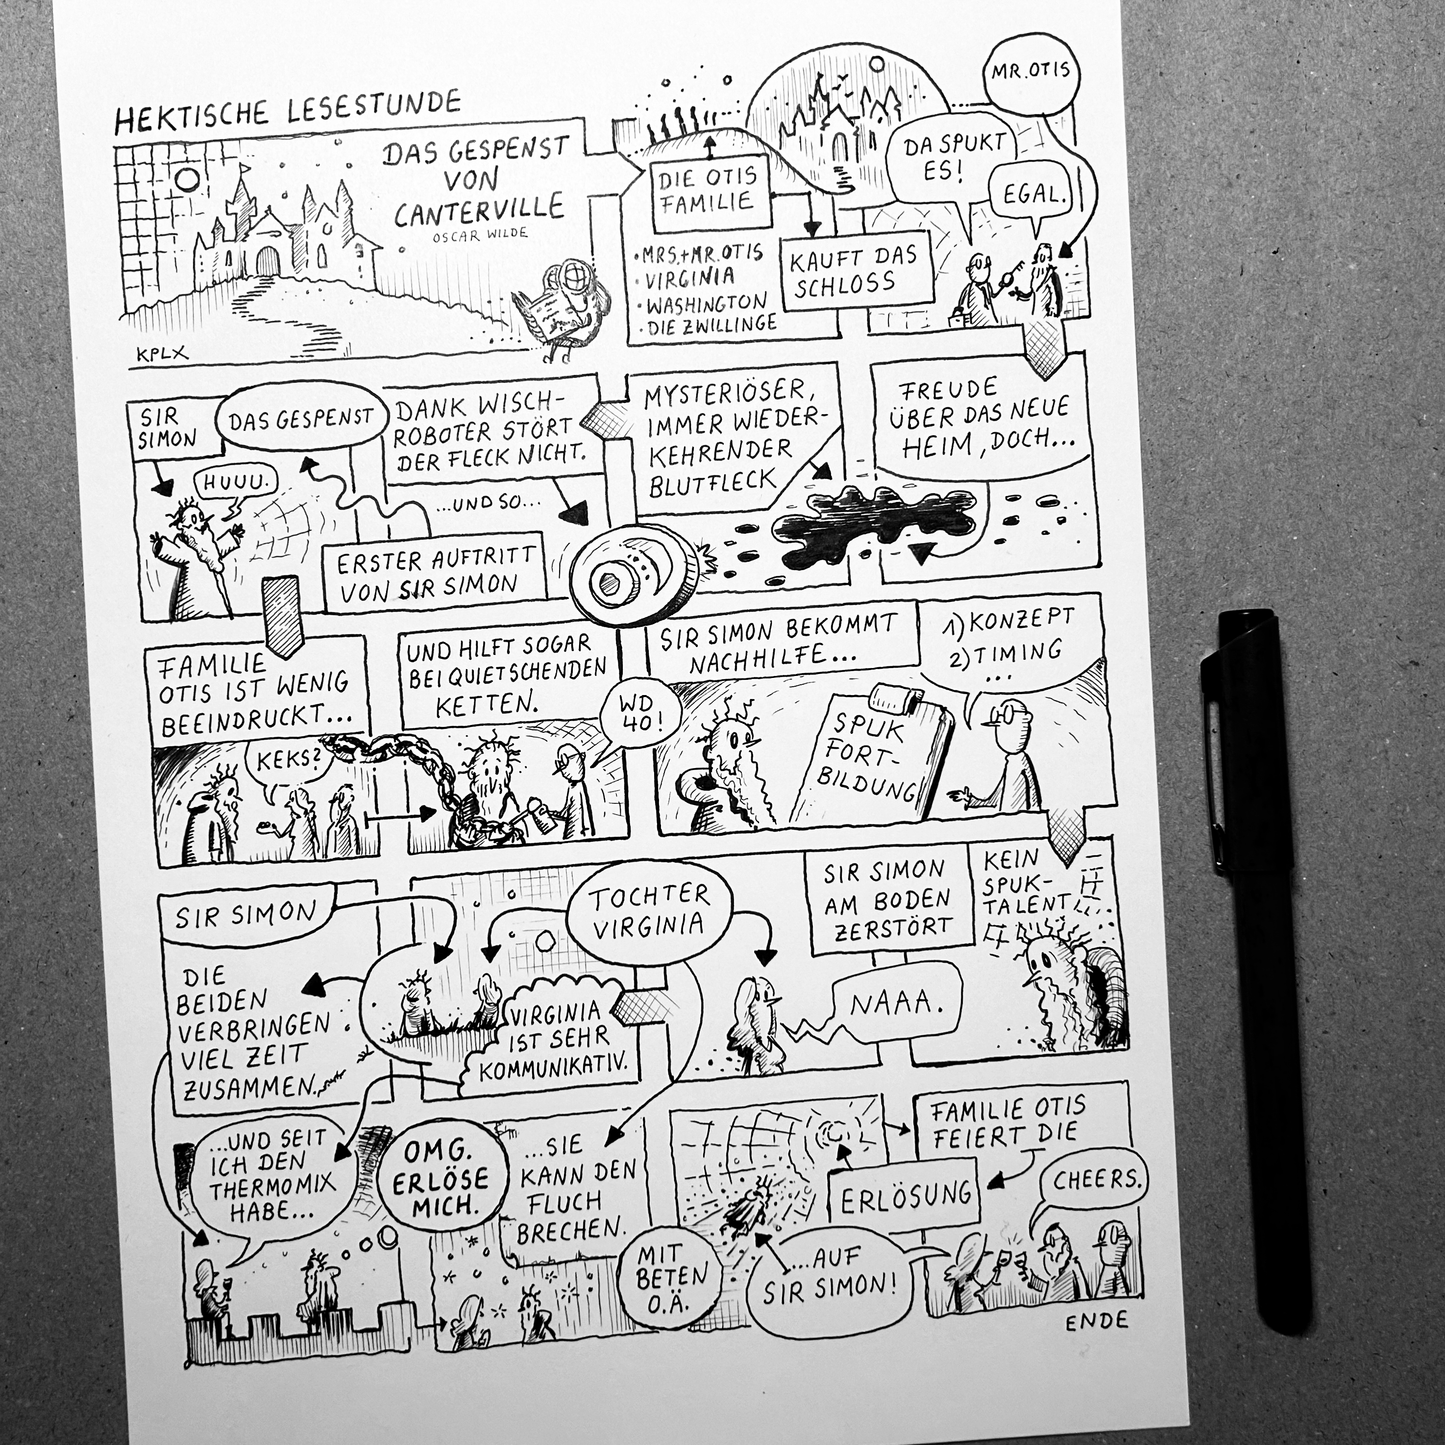 HEKTISCHE LESESTUNDE
DAS GESPENST
VON
CANTERVILLE
OSCAR WILDE
KPLX
DIE OTIS
FAMILIE
• MRS.+MR. OTIS
• VIRGINIA
• WASHINGTON
• DIE ZWILLINGE
KAUFT DAS
SCHLOSS
MR. OTIS
DA SPUKT
ES!
EGAL.
FREUDE
ÜBER DAS NEUE
HEIM, DOCH...
MYSTERIÖSER,
IMMER WIEDER-
KEHRENDER
BLUTFLECK
DANK WISCH-
ROBOTER STÖRT
DER FLECK NICHT.
...UND SO...
ERSTER AUFTRITT
VON SIR SIMON
DAS GESPENST
SIR
SIMON
HUUU.
FAMILIE
OTIS IST WENIG
BEEINDRUCKT...
KEKS?
UND HILFT SOGAR
BEI QUIETSCHENDEN
KETTEN.
WD
40!
SIR SIMON BEKOMMT
NACHHILFE...
1) KONZEPT
2) TIMING
...
SPUK
FORT-
BILDUNG
KEIN
SPUK-
TALENT
SIR SIMON
AM BODEN
ZERSTÖRT
NAAA.
TOCHTER
VIRGINIA
VIRGINIA
IST SEHR
KOMMUNIKATIV.
SIR SIMON
DIE
BEIDEN
VERBRINGEN
VIEL ZEIT
ZUSAMMEN.
...UND SEIT
ICH DEN
THERMOMIX
HABE...
OMG.
ERLÖSE
MICH.
...SIE
KANN DEN
FLUCH
BRECHEN.
MIT
BETEN
O.Ä.
ERLÖSUNG
FAMILIE OTIS
FEIERT DIE
...AUF
SIR SIMON!
CHEERS.
ENDE